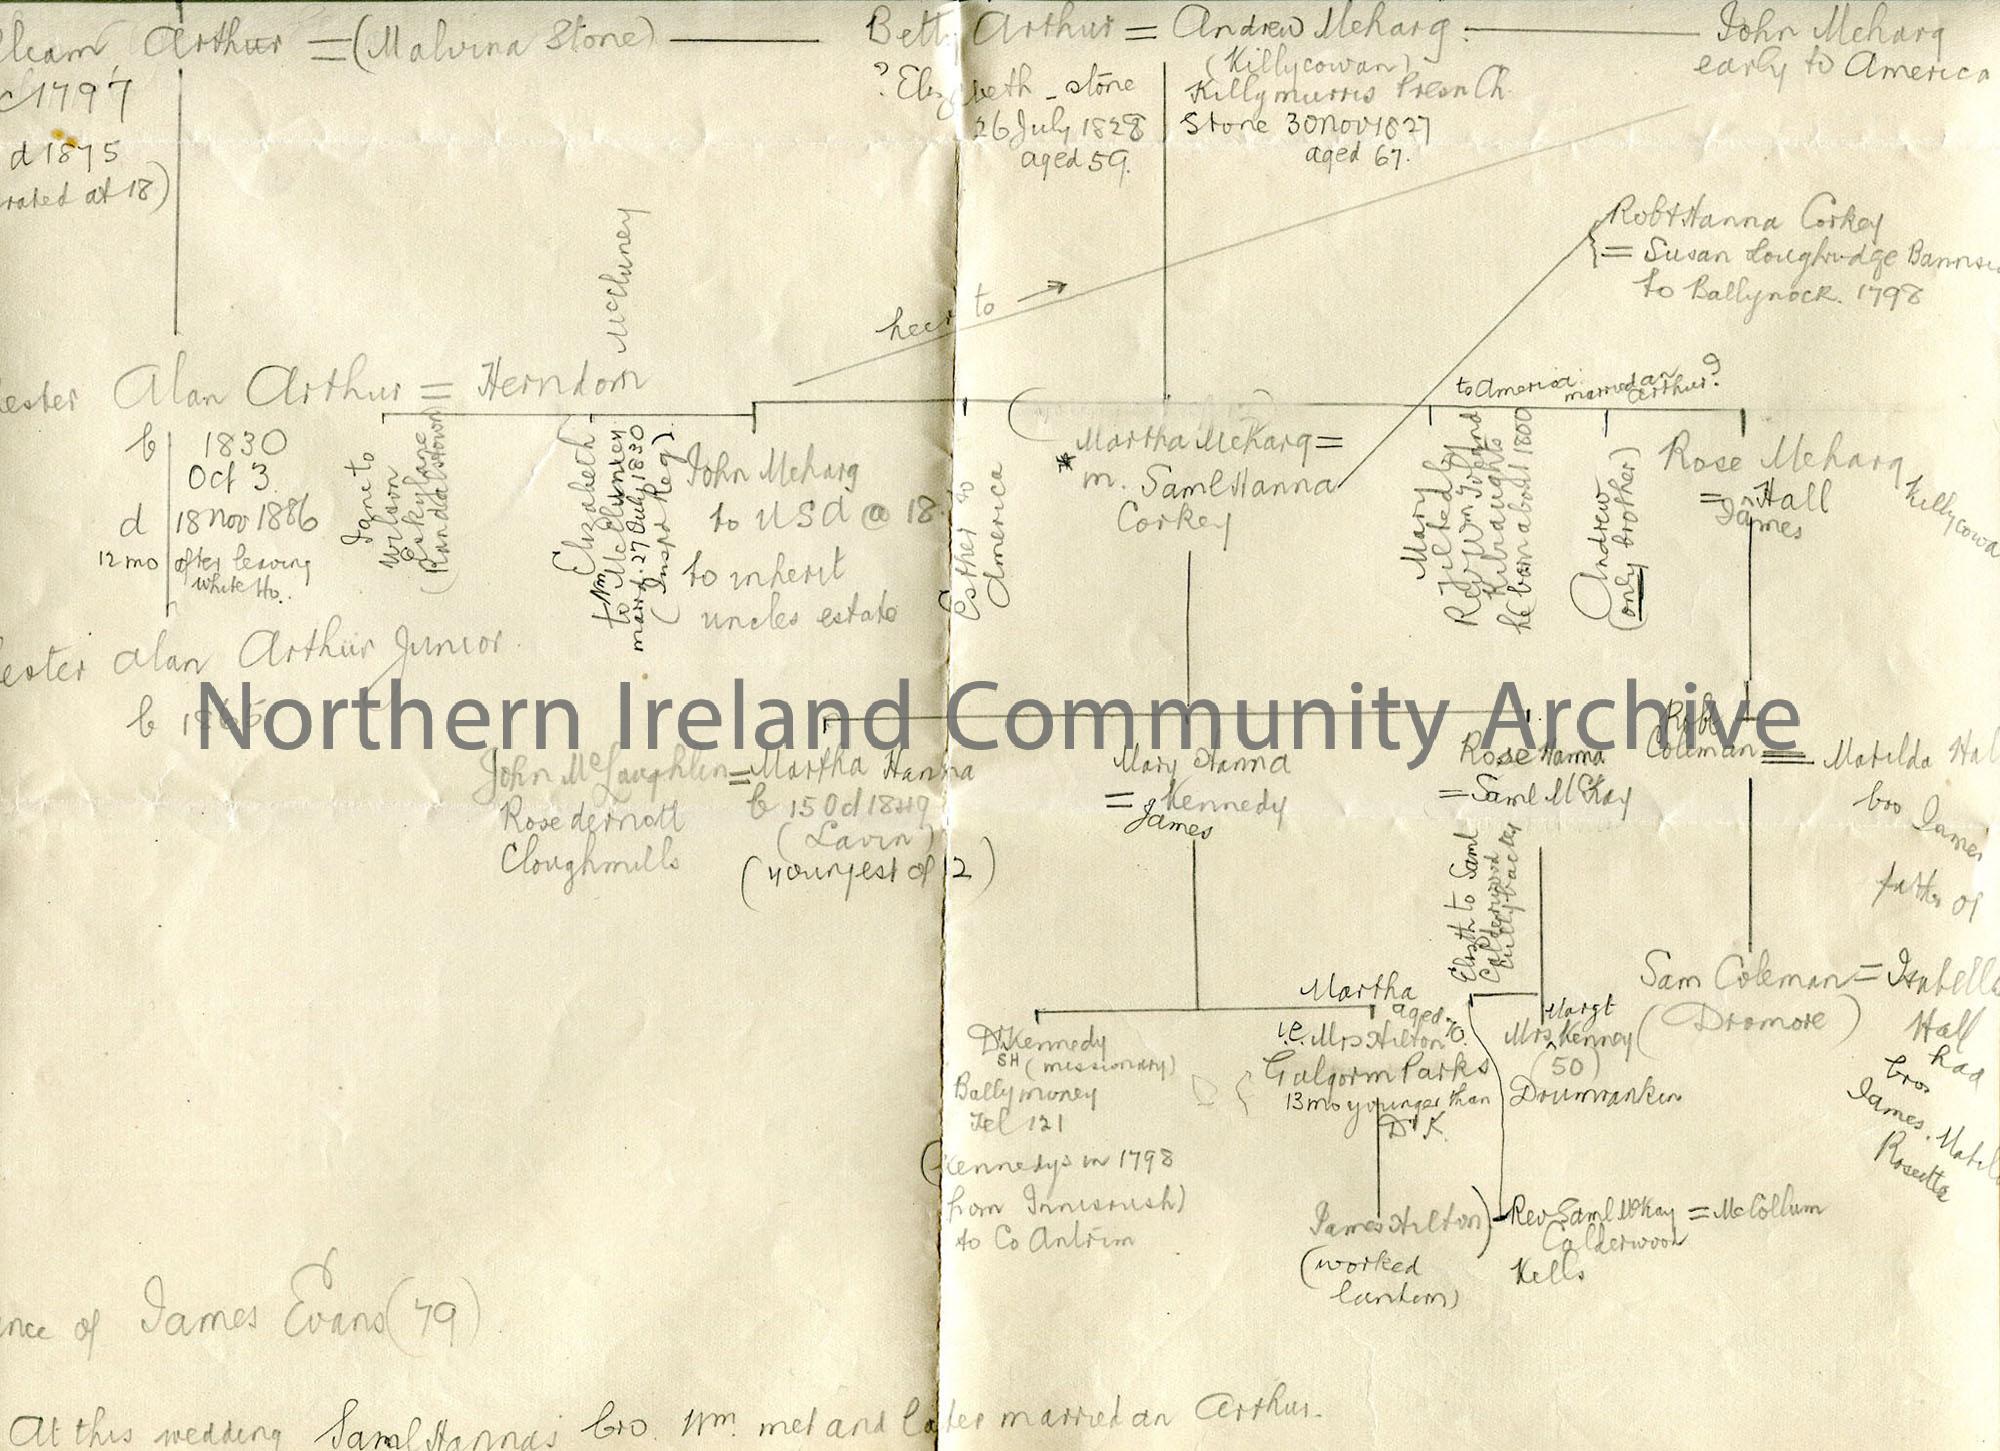 Arthur = (Malvina Stone)
1797
d 1875
at 18)
Arthur = Andrew Meharg
(Killycowan)
? Eliz beth - stone
26 July 1828
aged 59.
Killymurris Presn Ch
Stone 30 Nov 1827
aged 67.
John Meharg
early to America
Robt Hanna Corkey
= Susan Loughridge
to Ballynock. 1798
heir to
Alan Arthur = Herndon
b 1830
Oct 3
d 18 Nov 1886
12 mo after leaving
White Ho.
Alan Arthur Junior.
b
Jane to
Wilson
Eskylane
(Randalstown)
McCluney
Elizabeth
to Wm McCluney
marrd. 27 July 1830
(Inspd Reg)
John Meharg
to USA @ 18
to inherit
uncles estate
Esther to
America
Martha Meharg =
* m. Saml Hanna
Corkey
to America. married an
Arthur?
Mary
Jilted by
Rev Wm
Kilraughts
he born about 1800
Andrew
(only brother)
Rose Meharg
= Hall
James
John McLaughlin = Martha Hanna
Rosedermott
Cloughmills
(Lavin)
(youngest of 12)
Mary Hanna
= Kennedy
James
Rose Hanna
= Saml McKay
Robt
Coleman = Matilda
bro
father of
Elizth to Saml
Calderwood
Cullybackey
Sam Coleman = Isabella
(Dromore)
Hall
had
bros
James.
Rosetta
Dr Kennedy
SH (missionary)
Ballymoney
Tel 121
Kennedys in 1798
from Innisrush)
to Co Antrim
Martha
aged 70.
i.e. Mrs Hilton
Galgorm Parks
13 mo younger than
Dr K.
Margt
Mrs Kenney
(50)
Drumrankin
James Hilton)
(worked
lantern)
Rev Saml McKay = McCollum
Calderwood
Kells
of James Evans (79)
At this wedding Saml Hanna's bro. Wm. met and later married an Arthur.
Northern Ireland Community Archive